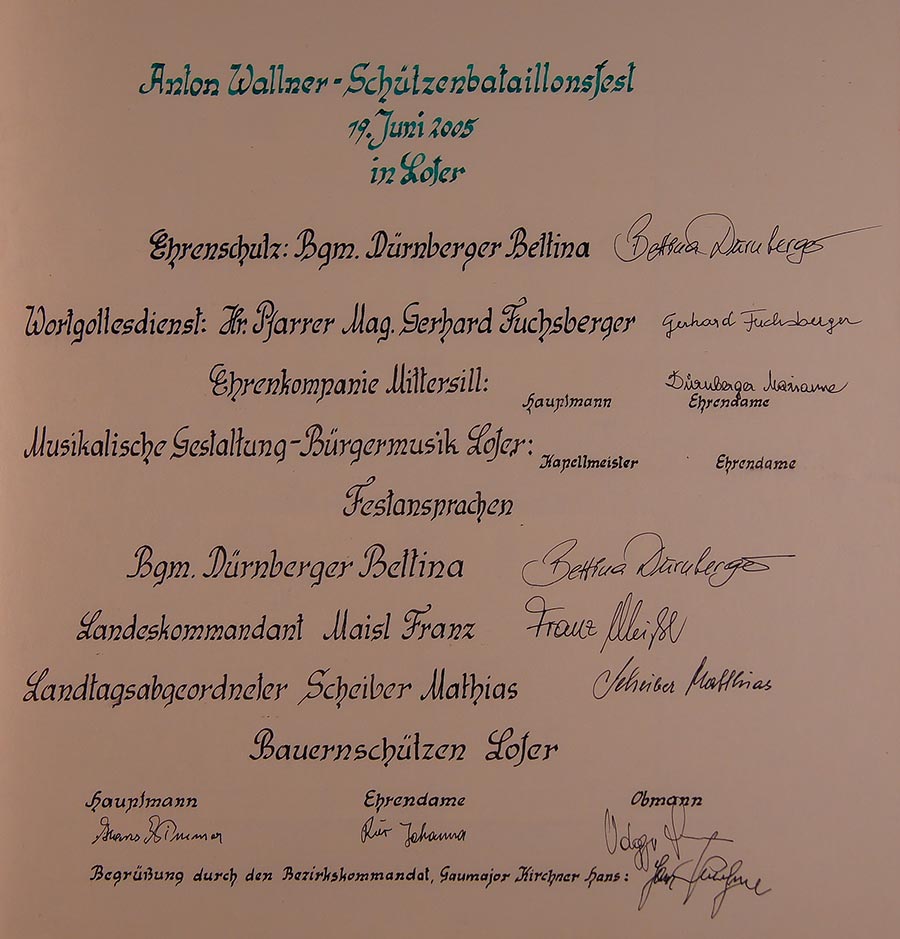 Anton Wallner - Schützenbataillonsfest
19. Juni 2005
in Lofer
Ehrenschutz: Bgm. Dürnberger Bettina Bettina Dürnberger
Wortgottesdienst: Hr. Pfarrer Mag. Gerhard Fuchsberger Gerhard Fuchsberger
Ehrenkompanie Mittersill: Dürnberger Marianne
Hauptmann Ehrendame
Musikalische Gestaltung-Bürgermusik Lofer:
Kapellmeister Ehrendame
Festansprachen
Bgm. Dürnberger Bettina Bettina Dürnberger
Landeskommandant Maisl Franz Franz
Landtagsabgeordneter Scheiber Mathias Scheiber Matthias
Bauernschützen Lofer
Hauptmann Ehrendame Obmann
Johanna
Begrüßung durch den Bezirkskommandat, Gaumajor Kirchner Hans: